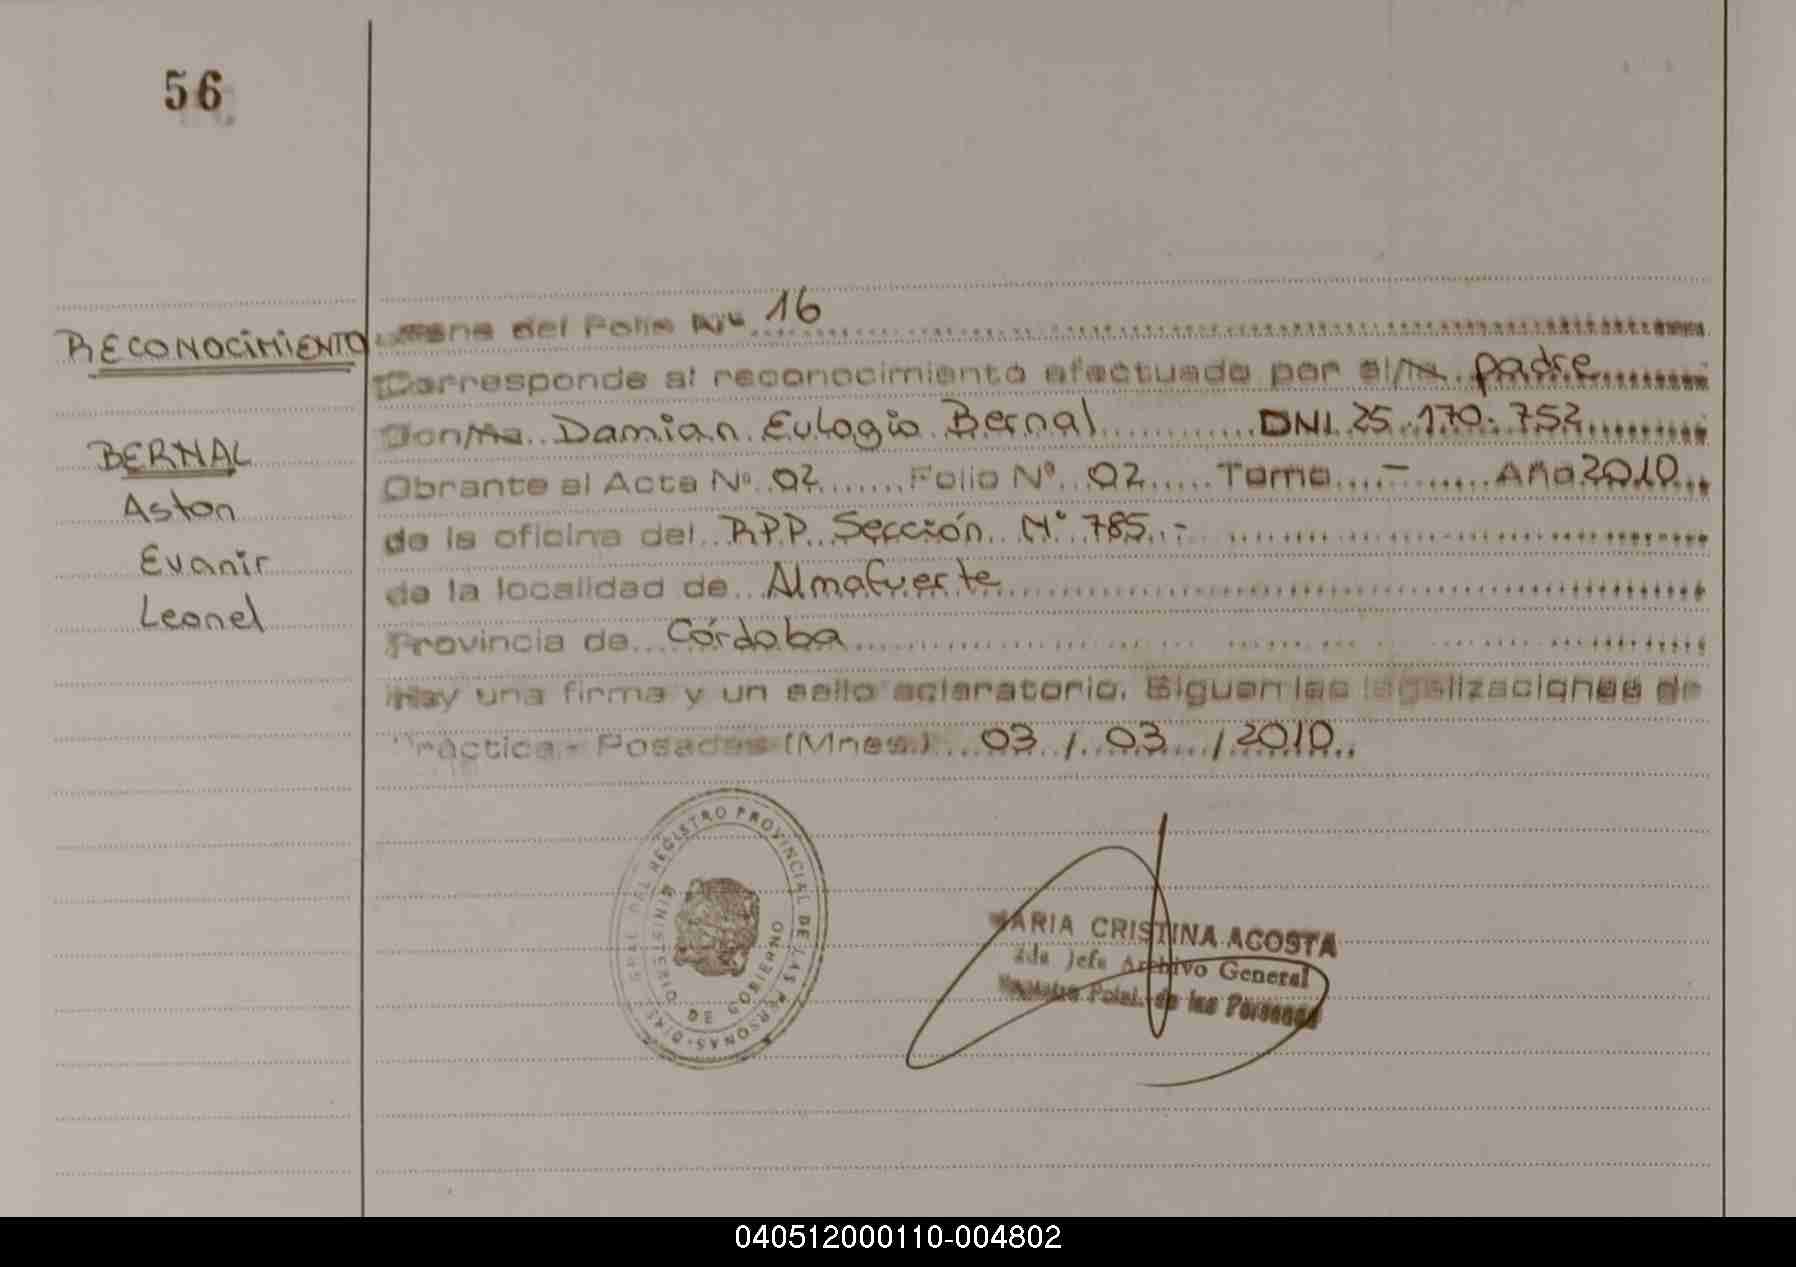 56
RECONOCIMIENTO
BERNAL
Aston
Evanir
Leonel
Viene del Folio Nº 16
Corresponde al reconocimiento efectuado por el/la padre
Don/ña Damian Eulogio Bernal DNI 25.170.752
Obrante al Acta Nº 02 Folio Nº 02 Tomo - Año 2010
de la oficina del RPP Sección Nº 785.-
de la localidad de Almafuerte
Provincia de Córdoba
Hay una firma y un sello aclaratorio. Siguen las legalizaciones de
Práctica.- Posadas (Mnes.) 03 / 03 / 2010
DEL REGISTRO PROVINCIAL DE LAS PERSONAS
DE GOBIERNO
MARIA CRISTINA ACOSTA
2da Jefe Archivo General
Registro Pcial. de las Personas
040512000110-004802